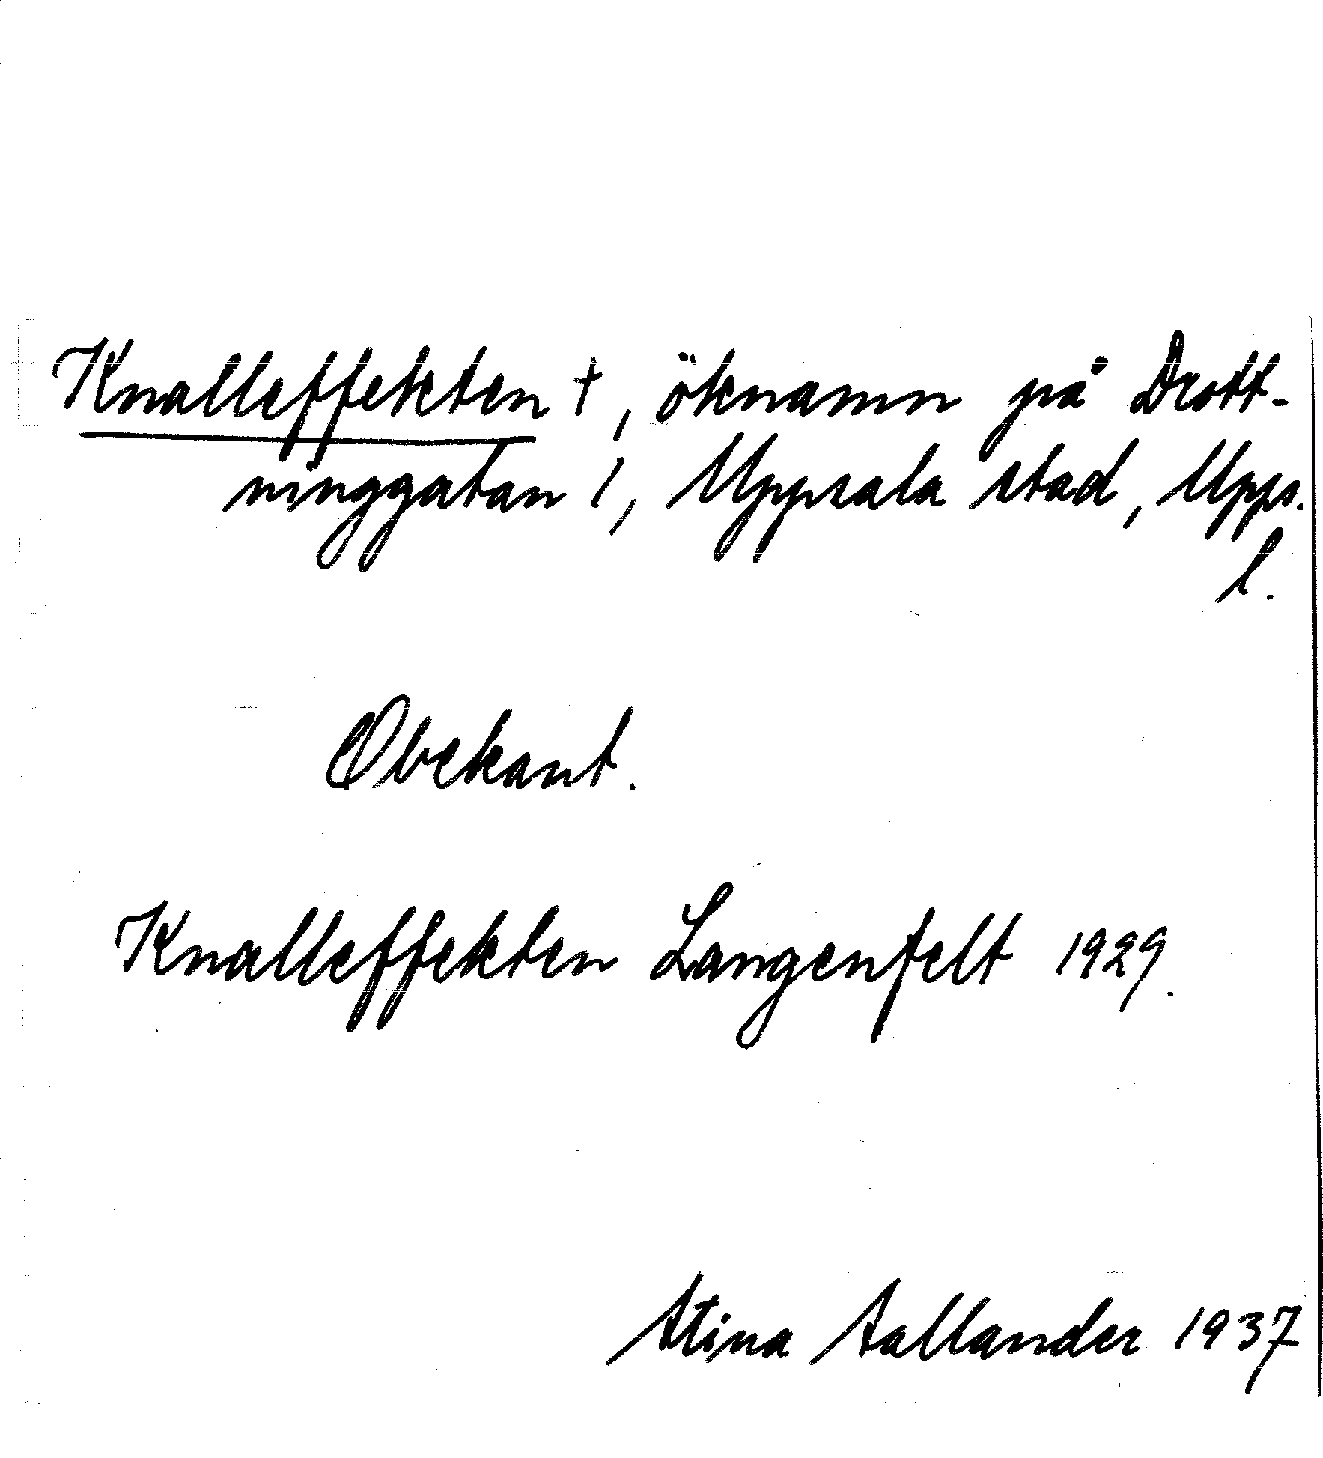 Knalleffekten †, öknamn på Drott-
ninggatan 1, Uppsala stad, Upps.
l.
Obekant.
Knalleffekten Langenfelt 1929.
Stina Sallander 1937